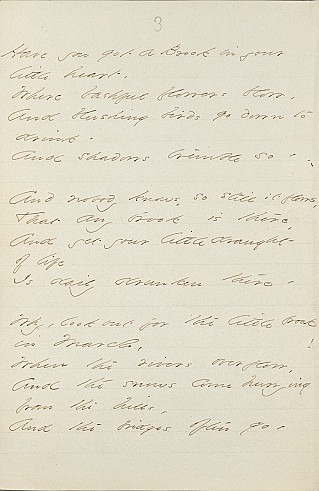 3
Have you got a Brook in your
little heart,
Where bashful flowers blow,
And blushing birds go down to
drink -
And shadows tremble so -
And nobody knows, so still it flows,
That any brook is there,
And yet your little draught
of life
Is daily drunken there -
Why, look out for the little brook
in March, !
When the rivers overflow,
And the snows come hurrying
from the hills,
And the bridges often go -